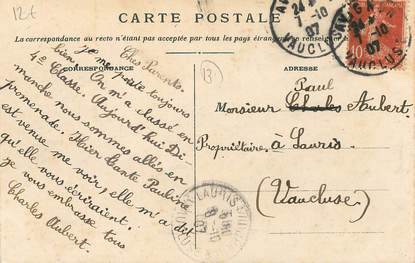 12t
CARTE POSTALE
La correspondance au recto n'est pas acceptée par tous les pays étrangers
CORRESPONDANCE
ADRESSE
Chers Parents.
je me porte toujours
bien. On m'a classé en
1e Classe. Aujourd'hui Di-
manche nous sommes allés en
promenade. Hier tante Pauline
est venue me voir, elle m'a dit
qu'elle vous écrirait.
je vous embrasse tous
Charles Aubert.
13
Paul
Monsieur Charles Aubert
Propriétaire à Lauris
(Vaucluse)
24
7-10
07
VAUCLUSE
7-10
07
VAUCLUSE
10
LAURIS
8-10